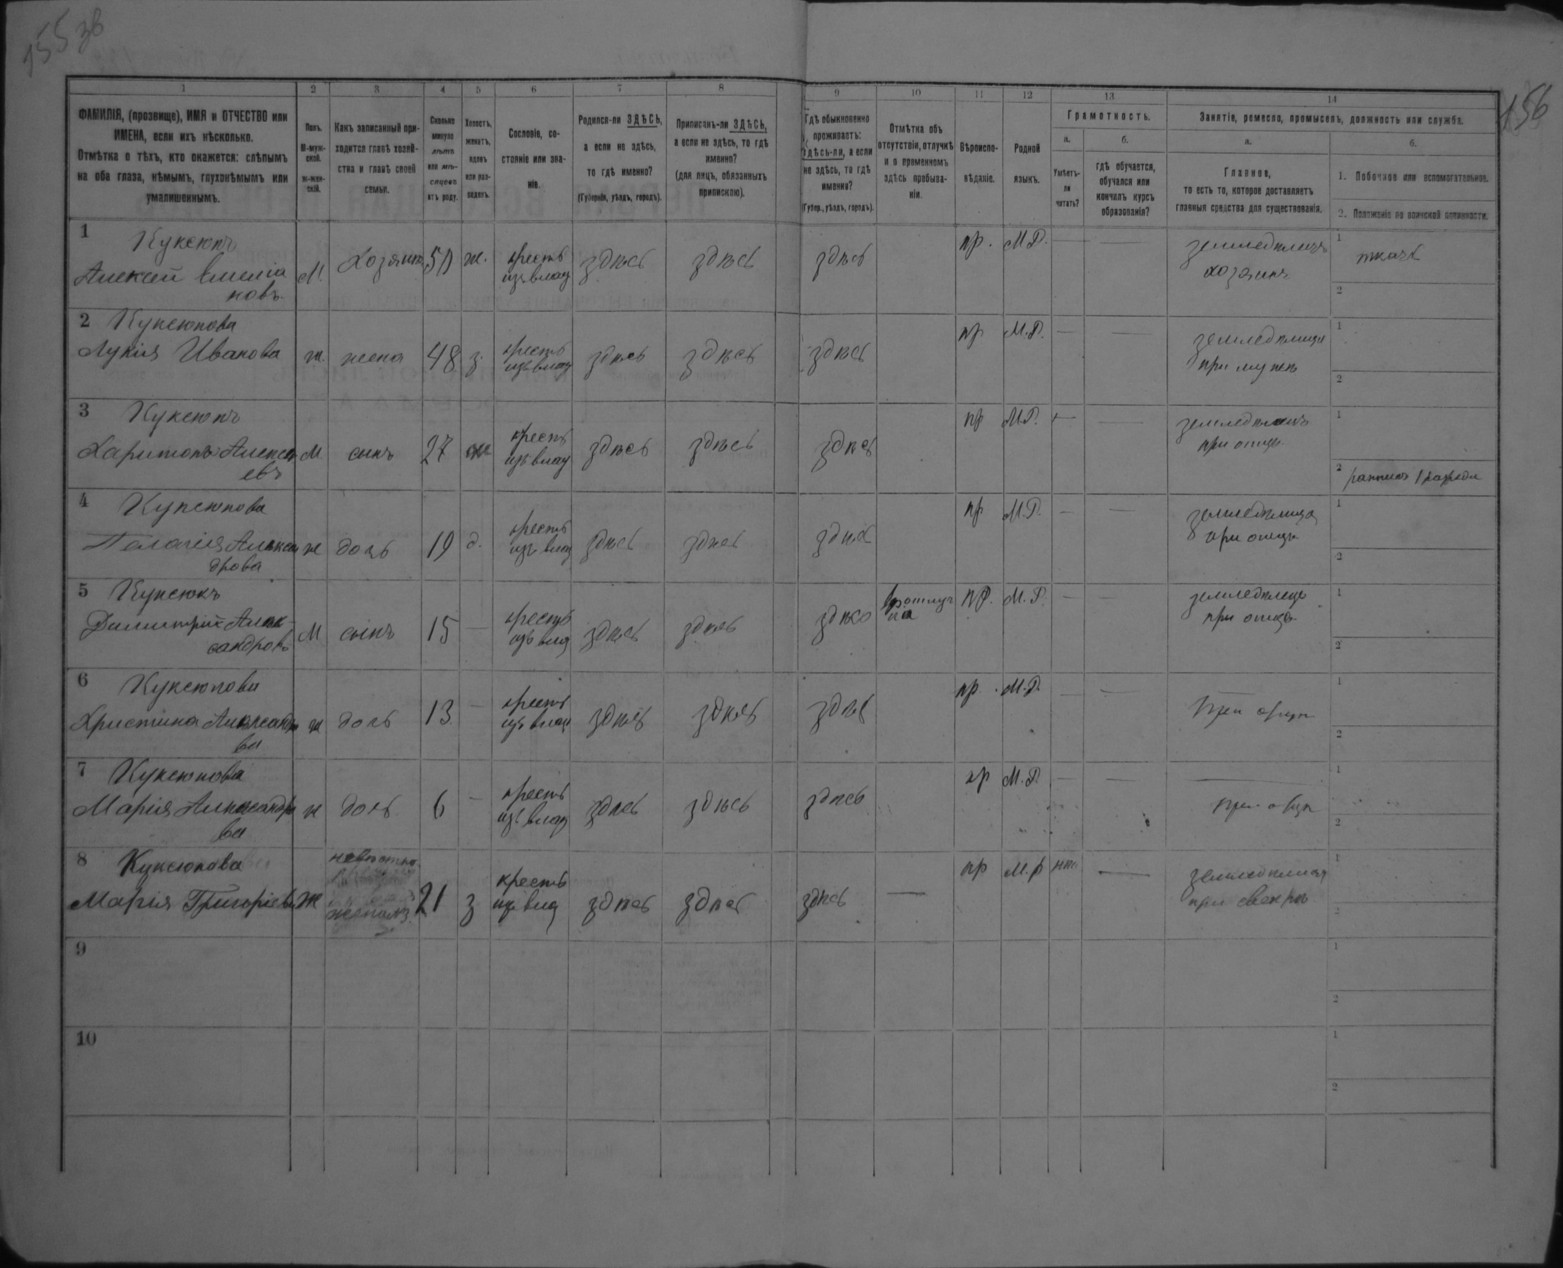 155 зв
156
1 2 3 4 5 6 7 8 9 10 11 12 13 14
ФАМИЛІЯ, (прозвище), ИМЯ и ОТЧЕСТВО или
ИМЕНА, если ихъ нѣсколько.
Отмѣтка о тѣхъ, кто окажется: слѣпымъ
на оба глаза, нѣмымъ, глухонѣмымъ или
умалишеннымъ.
Полъ.
М-муж-
ской.
ж-жен-
скій.
Какъ записанный при-
ходится главѣ хозяй-
ства и главѣ своей
семьи.
Сколько
минуло
лѣтъ
или мѣ-
сяцевъ
отъ роду.
Холостъ,
женатъ,
вдовъ
или раз-
веденъ.
Сословіе, со-
стояніе или зва-
ніе.
Родился-ли ЗДѢСЬ,
а если не здѣсь,
то гдѣ именно?
(Губернія, уѣздъ, городъ).
Приписанъ-ли ЗДѢСЬ,
а если не здѣсь, то гдѣ
именно?
(для лицъ, обязанныхъ
припискою).
Гдѣ обыкновенно
проживаетъ:
Здѣсь-ли, а если
не здѣсь, то гдѣ
именно?
(Губер., уѣздъ, городъ).
Отмѣтка объ
отсутствіи, отлучкѣ
и о временномъ
здѣсь пребыва-
ніи.
Вѣроиспо-
вѣданіе.
Родной
языкъ.
Грамотность.
а.
Умѣетъ-
ли
читать?
б.
гдѣ обучается,
обучался или
кончилъ курсъ
образованія?
Занятіе, ремесло, промыселъ, должность или служба.
а.
Главное,
то есть то, которое доставляетъ
главныя средства для существованія.
б.
1. Побочное или вспомогательное.
2. Положеніе по воинской повинности.
1 Куксюкъ
Алексей
М. Хозяинъ 50 ж. кресть изъ влад здѣсь здѣсь здѣсь пр. М.Р. — — земледѣлецъ хозяинъ
1 ткачъ
2
2 Куксюкова
Лукія Иванова ж. жена 48 з. кресть изъ влад здѣсь здѣсь здѣсь пр М.Р. — — земледѣлица при мужѣ
1
2
3 Куксюкъ
Харитонъ Алексѣ
евъ
М сынъ 27 ж кресть изъ влад здѣсь здѣсь здѣсь пр М.Р. — — земледѣлецъ при отцѣ
1
2
4 Куксюкова
Пелагія Алексан
дрова
ж дочь 19 д. кресть изъ влад здѣсь здѣсь здѣсь пр М.Р. — — земледѣлица при отцѣ
1
2
5 Куксюкъ
Димитрій Алек-
сандровъ
М сынъ 15 — кресть изъ влад здѣсь здѣсь здѣсь пр. М.Р. — — земледѣлецъ при отцѣ
1
2
6 Куксюкова
Христина Александро
ва
ж дочь 13 — кресть изъ влад здѣсь здѣсь здѣсь пр. М.Р. — — При отцѣ
1
2
7 Куксюкова
Марія Александро
ва
ж дочь 6 — кресть изъ влад здѣсь здѣсь здѣсь пр М.Р. — — При отцѣ
1
2
8 Куксюкова
Марія Григорьева Ж невѣстка 21 з кресть изъ влад здѣсь здѣсь здѣсь — пр М.Р нѣт. — земледѣлица при свекрѣ
1
2
9
1
2
10
1
2